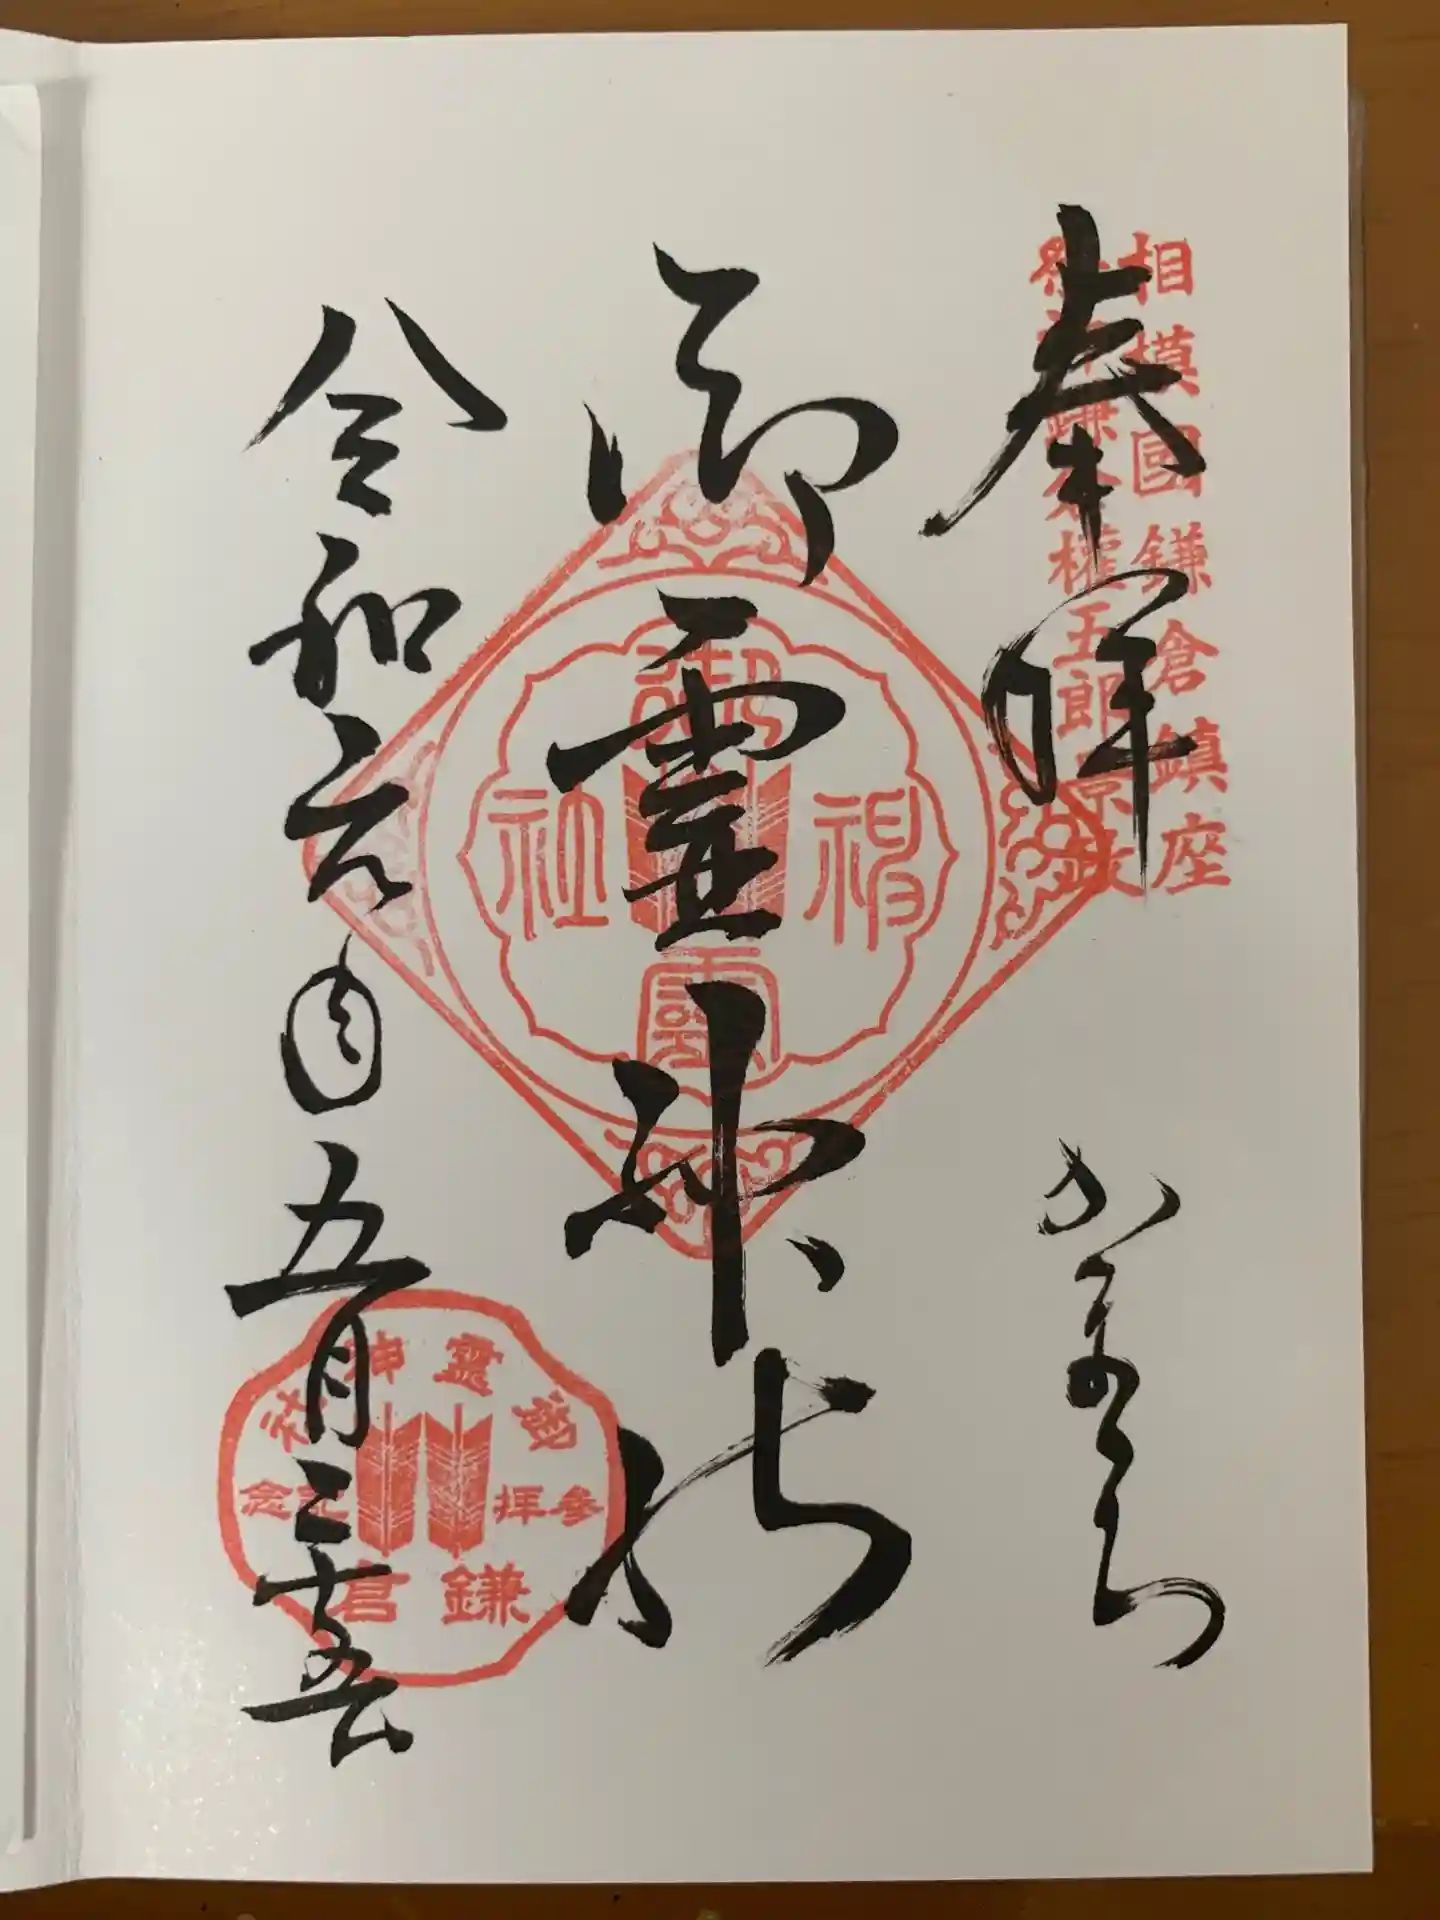 相模國鎌倉鎮座
祭神鎌倉權五郎景政
奉拝
かまくら
御霊神社
御霊神社
令和元年五月二十五
御霊神社
参拝記念
鎌倉